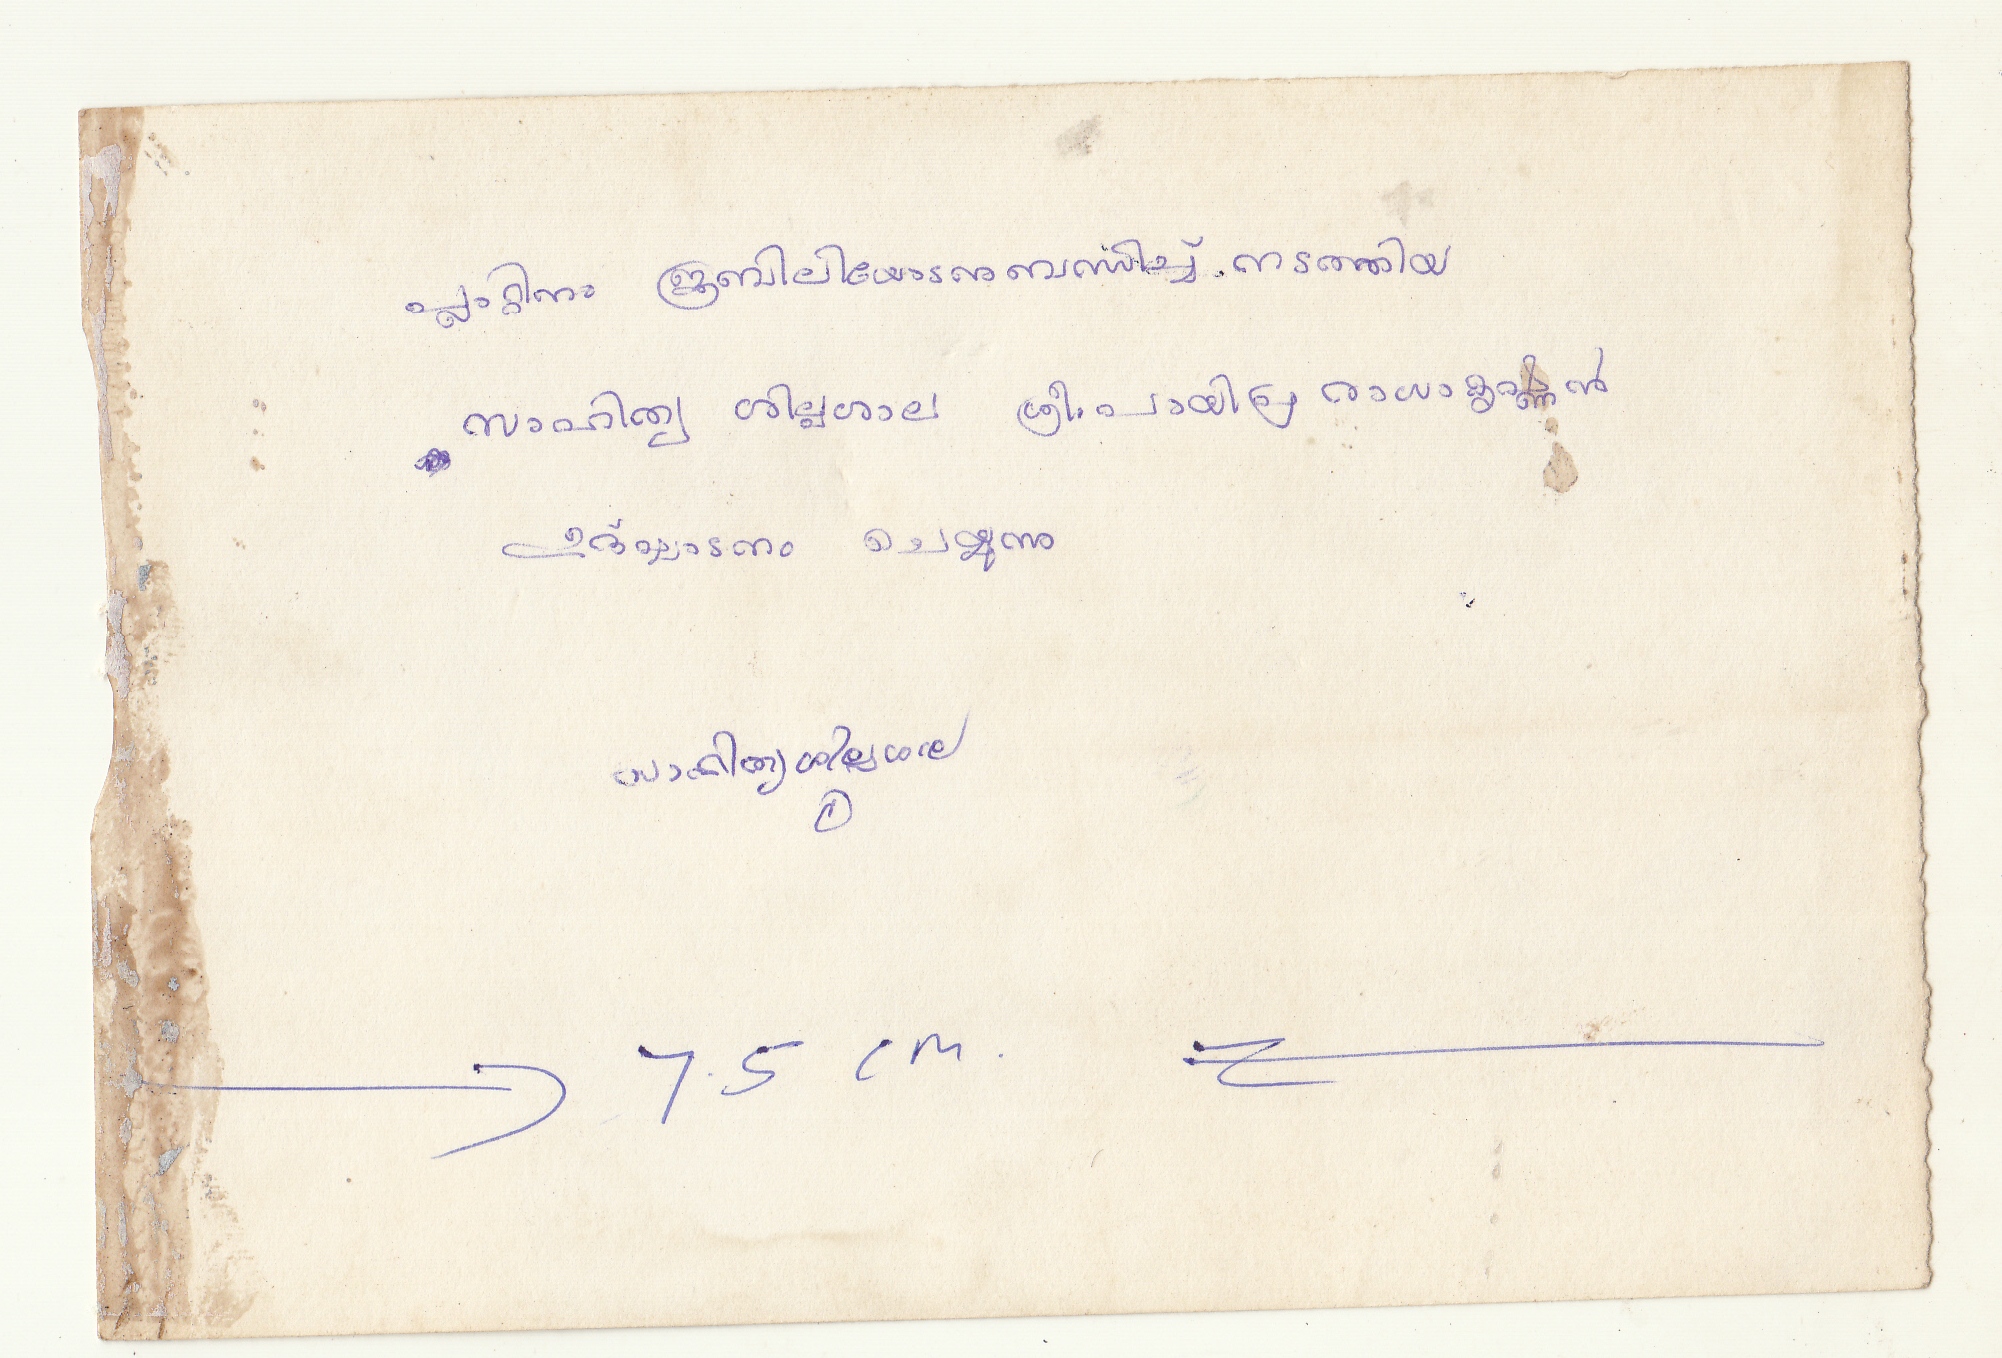 പ്ലാറ്റിനം ജൂബിലിയോടനുബന്ധിച്ച് നടത്തിയ
സാഹിത്യ ശില്പശാല ശ്രീ. പായിപ്ര രാധാകൃഷ്ണൻ
ഉദ്ഘാടനം ചെയ്യുന്നു
സാഹിത്യശില്പശാല
①
7.5 cm.